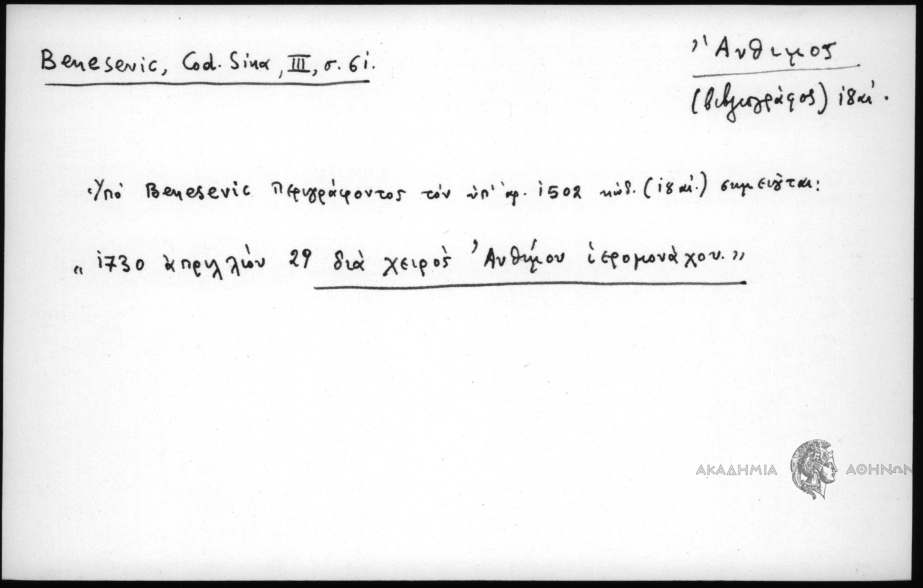 Benesevic, Cod. Sina, III, σ. 61.
Ἄνθιμος
(βιβλιογράφος) 18 αἰ.
Ὑπὸ Benesevic περιγράφοντος τὸν ὑπ' ἀρ. 1502 κώδ. (18 αἰ.) σημειοῦται:
„ 1730 ἀπριλλίου 29 διὰ χειρὸς Ἀνθίμου ἱερομονάχου.”
ΑΚΑΔΗΜΙΑ ΑΘΗΝΩΝ